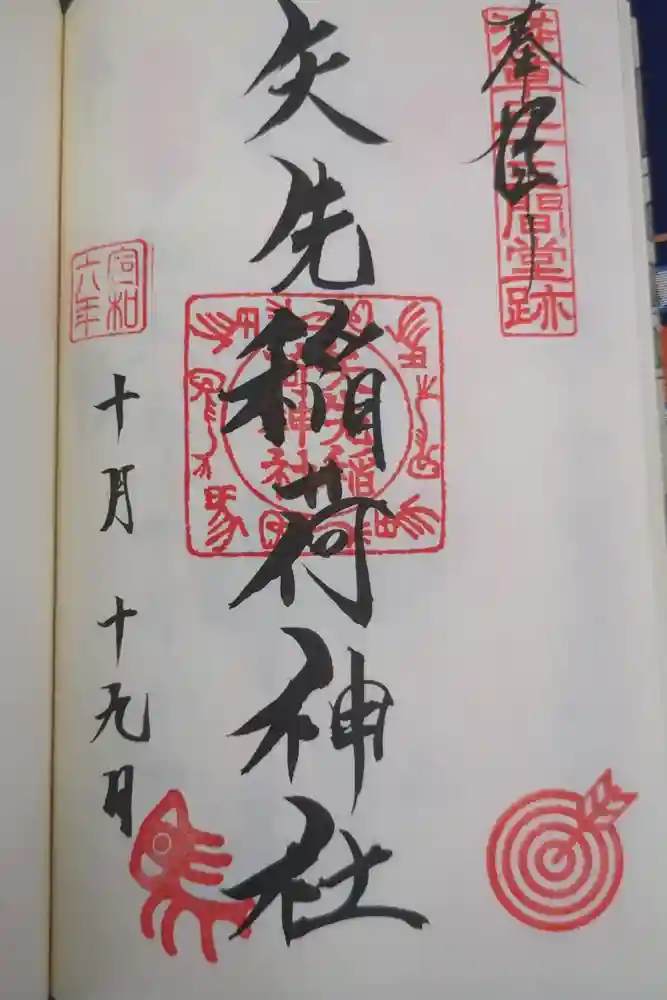 奉拝
三間堂跡
矢先稲荷神社
矢先稲
荷神社
令和
六年
十月十九日